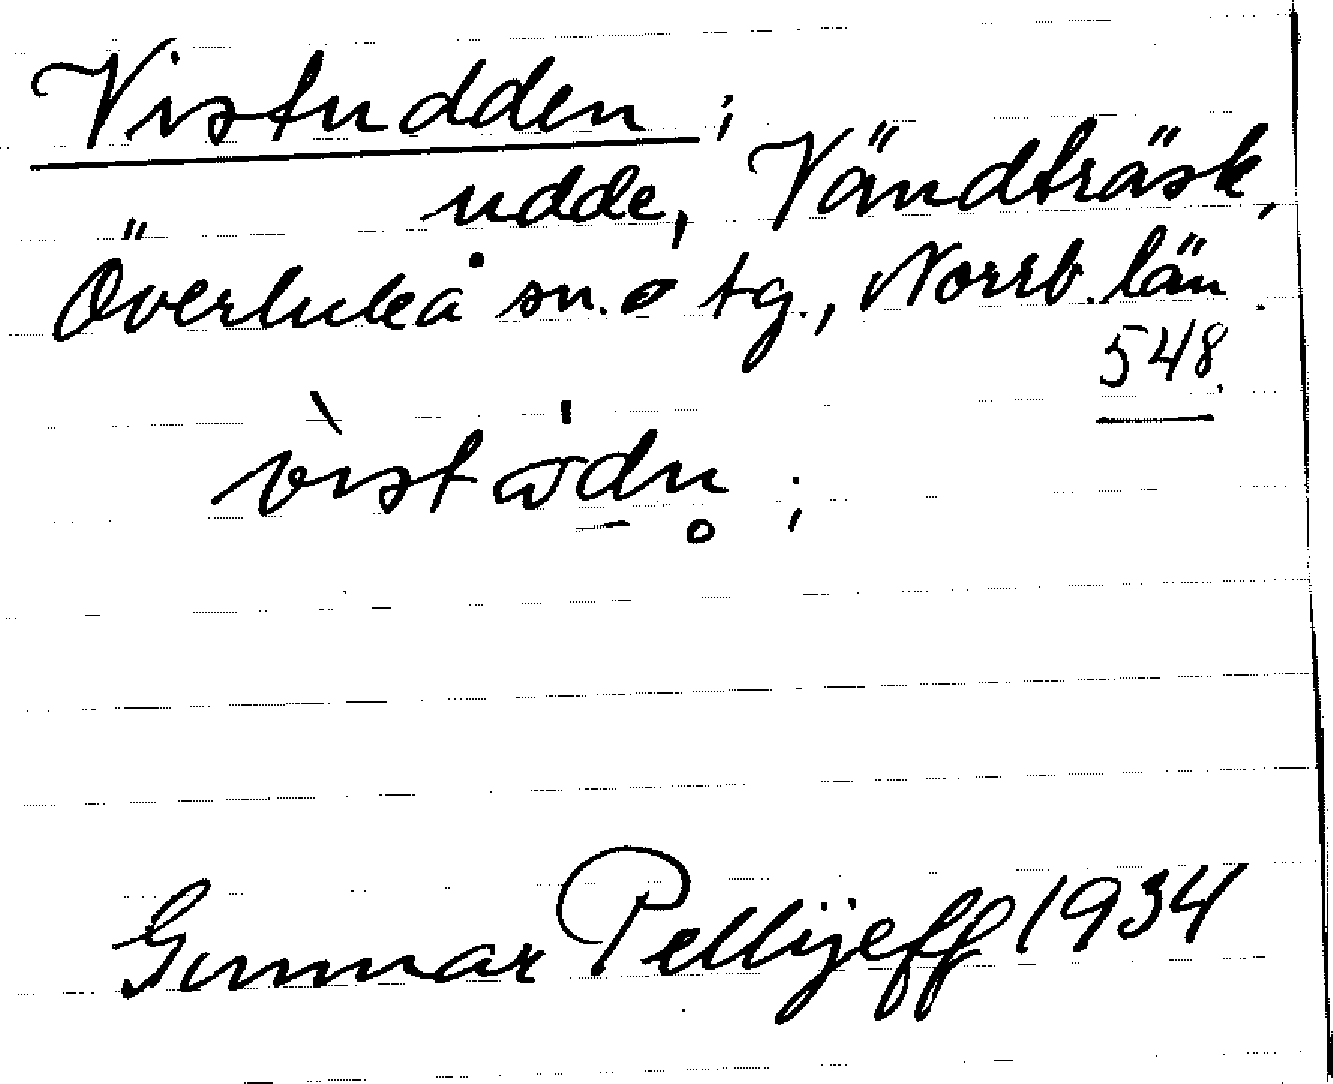 Vistudden ;
udde, Vändträsk,
Överluleå sn. o tg., Norrb. län.
548.
vistωdn̥ ;
Gunnar Pellijeff 1934